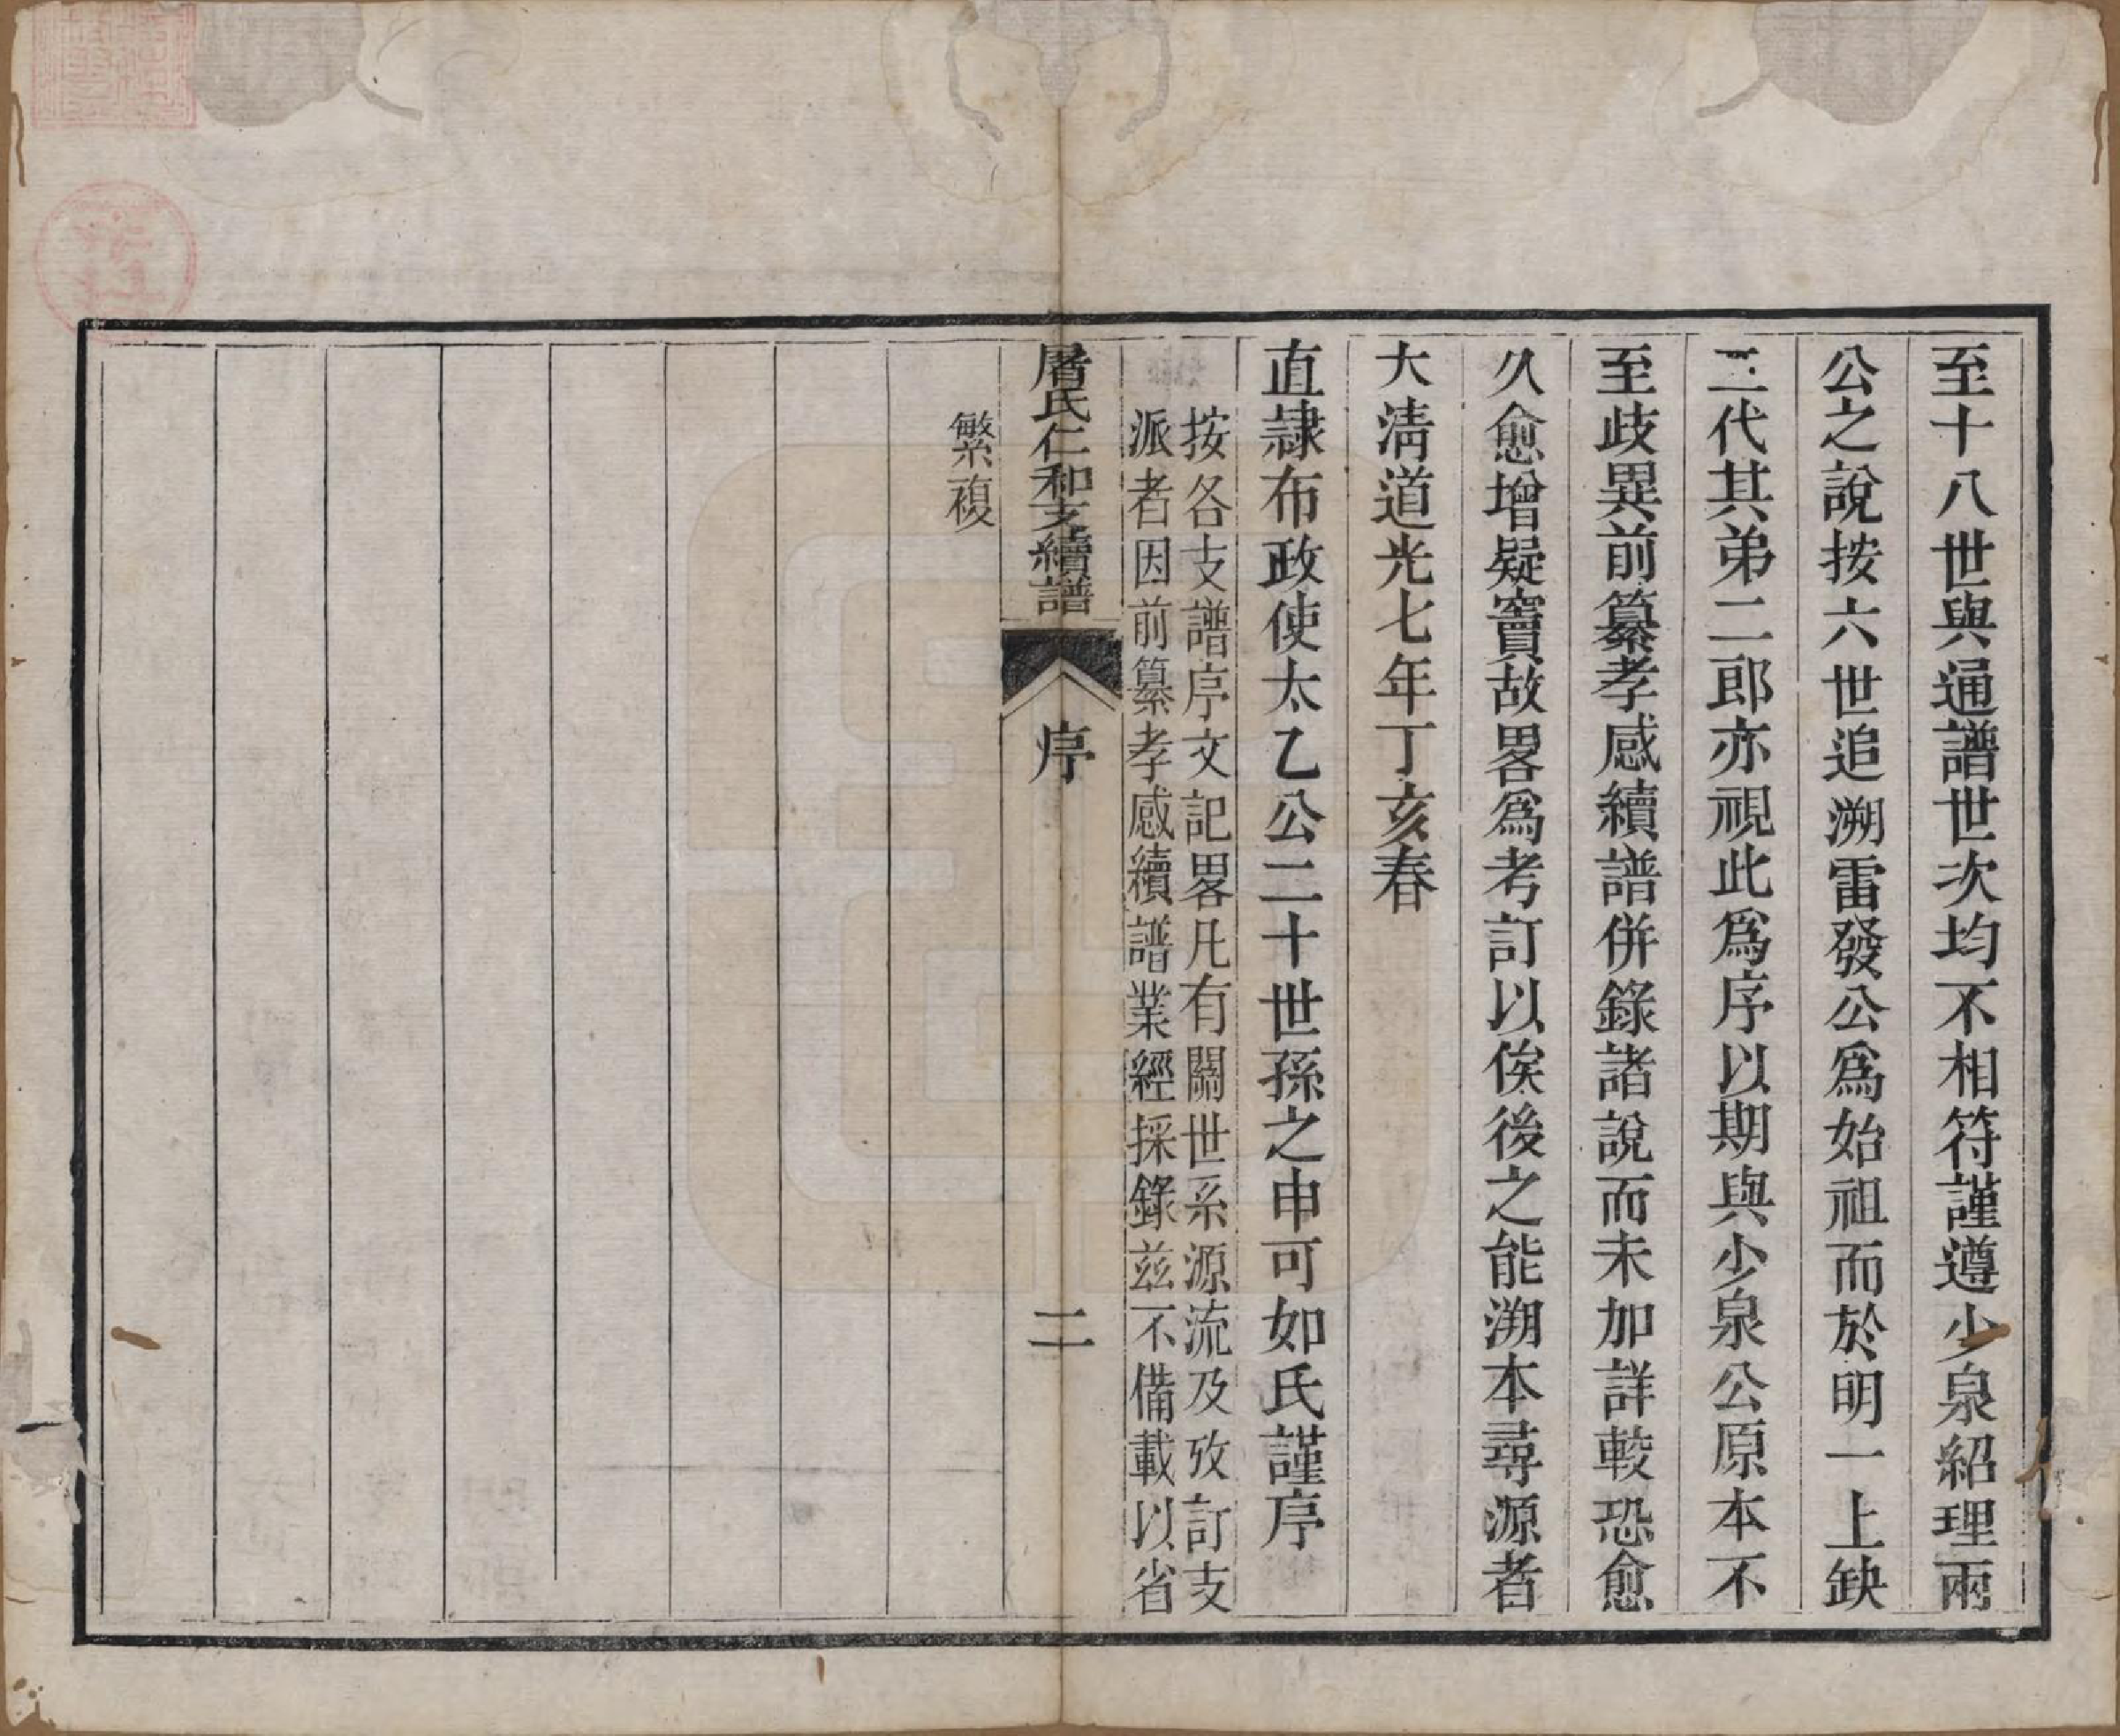 至十八世與通譜世次均不相符謹遵少泉紹理兩
公之說按六世追溯雷發公爲始祖而於明一上缺
二代其弟二郎亦視此爲序以期與少泉公原本不
至歧異前纂孝感續譜併錄諸說而未加詳較恐愈
久愈增疑竇故畧爲考訂以俟後之能溯本尋源者
大清道光七年丁亥春
直隷布政使太乙公二十世孫之申可如氏謹序
按各支譜序文記畧凡有關世系源流及攷訂支
派者因前纂孝感續譜業經採錄兹不備載以省
屠氏仁和支續譜 序 二
繁複